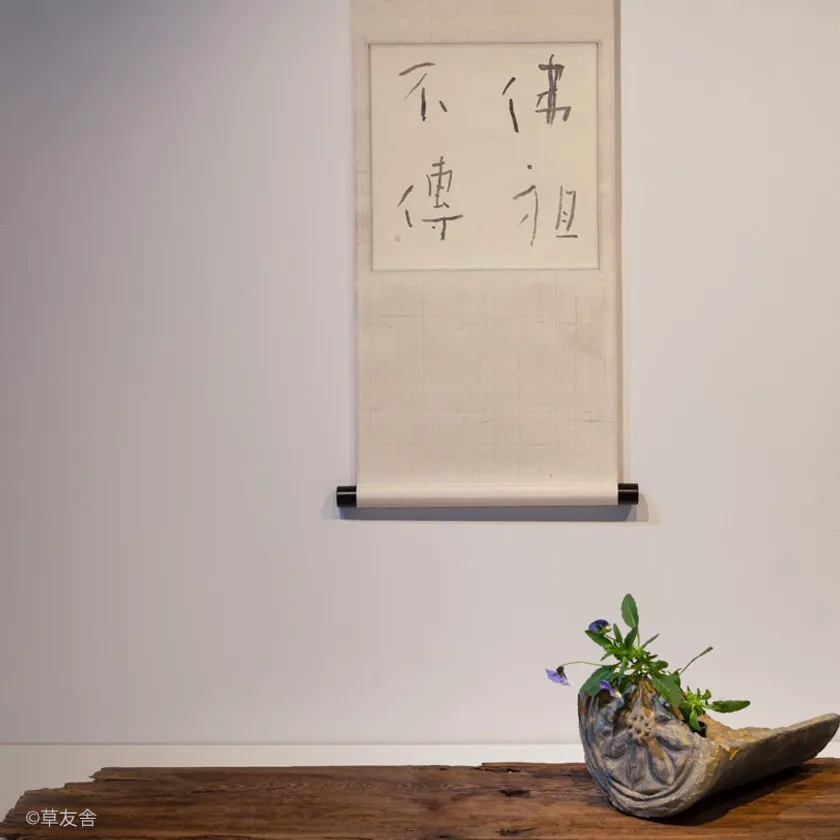 佛祖
不傳
©草友舍